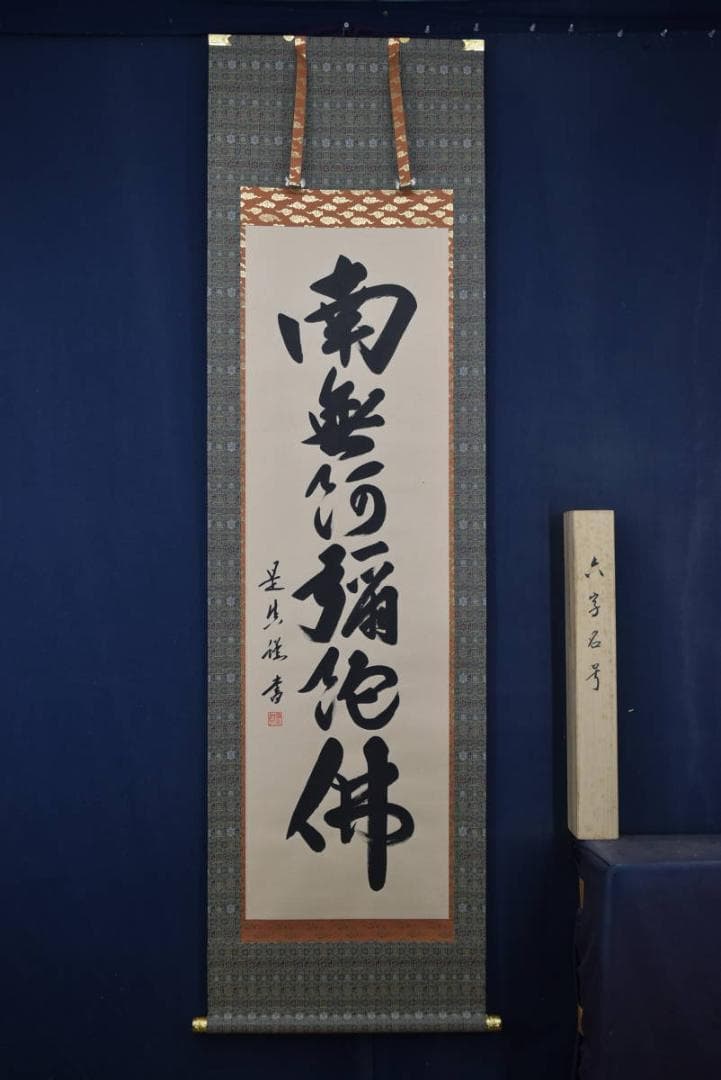 南無阿彌陀佛
是真謹書
六字名号